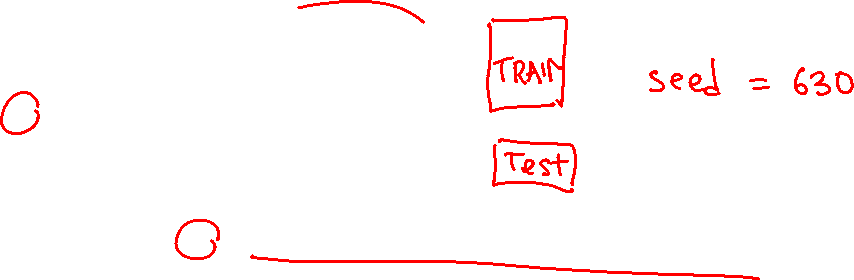 TRAIN
seed = 630
Test